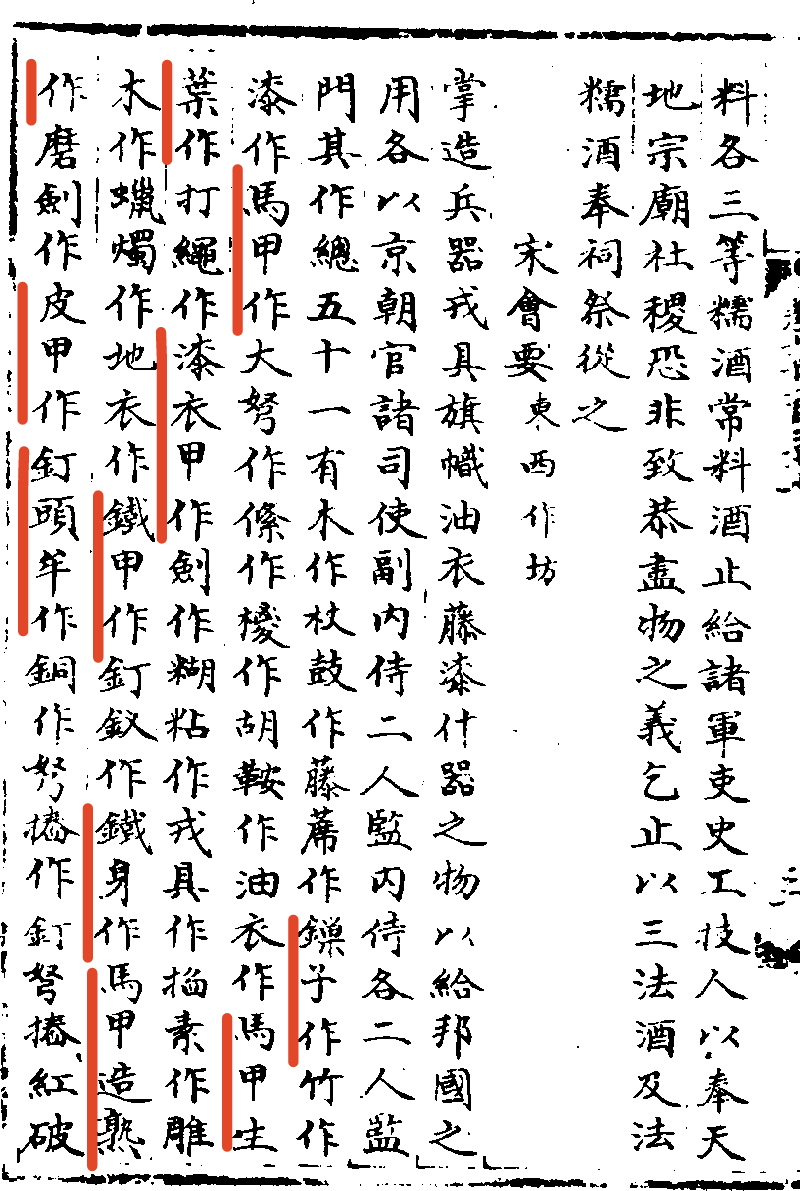 料各三等糯酒常料酒止給諸軍吏史工技人以奉天
地宗廟社稷恐非致恭盡物之義乞止以三法酒及法
糯酒奉祠祭從之
宋會要東西作坊
掌造兵器戎具旗幟油衣藤漆什器之物以給邦國之
用各以京朝官諸司使副內侍二人監內侍各二人監
門其作總五十一有木作杖鼓作藤蓆作鏁子作竹作
漆作馬甲作大弩作絛作椶作胡鞍作油衣作馬甲生
葉作打繩作漆衣甲作劍作糊粘作戎具作掐素作雕
木作蠟燭作地衣作鐵甲作釘釵作鐵身作馬甲造熟
作磨劍作皮甲作釘頭牟作銅作弩樁作釘弩樁紅破